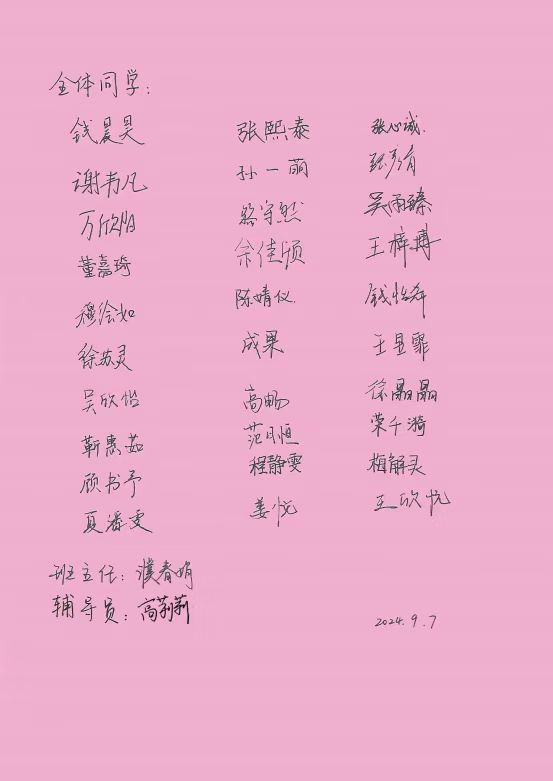 全体同学:
钱晨昊 张熙泰 张心诚.
谢韦凡 孙一萌 张彦俏
万欣阳 蔡宇然 吴雨臻
董嘉琦 余佳颀 王梓博
穆绘如 陈婧仪 钱怡卉
徐苏灵 成果 王昱霏
吴欣怡 高畅 徐晶晶
靳惠茹 范月恒 荣千漪
顾书予 程静雯 梅解灵
夏潘雯 姜悦 王欣悦
班主任: 濮春娟
辅导员: 高莉莉
2024.9.7